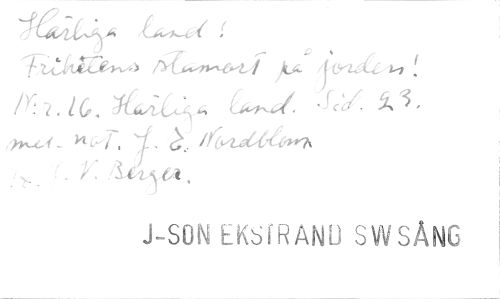 Härliga land!
Frihetens stamort på jorden!
N:r. 16. Härliga land. Sid. 23.
mel. not. J. E. Nordblom
V. Berger.
J-SON EKSTRAND SW SÅNG